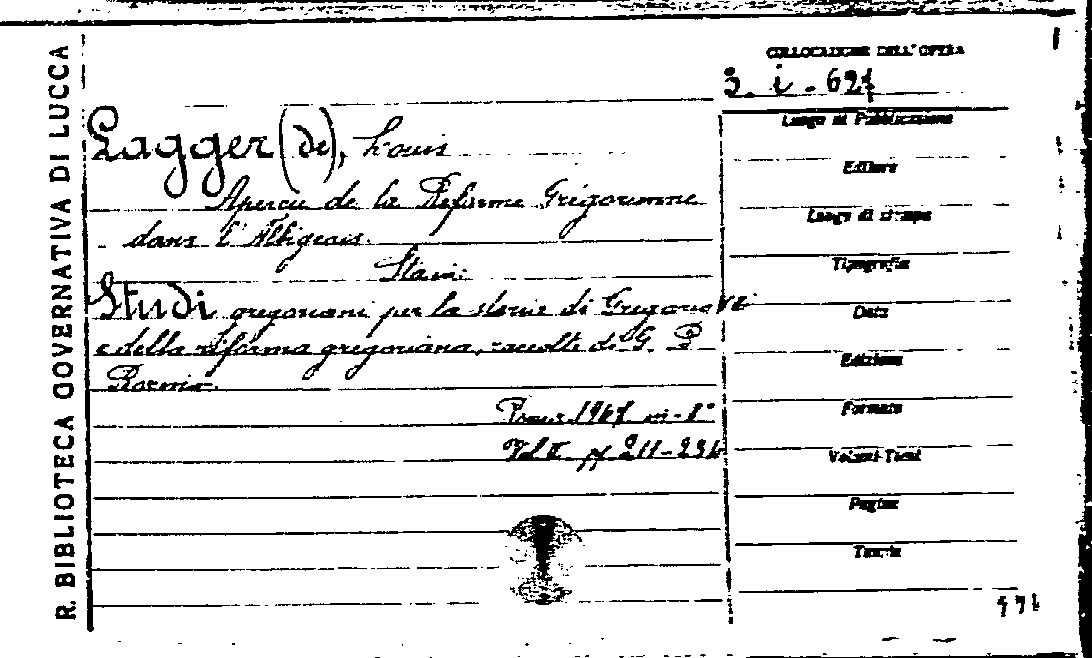 R. BIBLIOTECA GOVERNATIVA DI LUCCA
COLLOCAZIONE DELL'OPERA
3. i. 624
Lagger (de), Louis
Aperçu de la Réforme Grégorienne
dans l'Albigeois.
Sta in:
Studi gregoriani per la storia di Gregorio VII
e della riforma gregoriana, raccolti da G. B.
Borino.
in-8°
Vol II pp 211-234
Luogo di Pubblicazione
Editore
Luogo di stampa
Tipografia
Data
Edizione
Formato
Volumi-Tomi
Pagine
Tavole